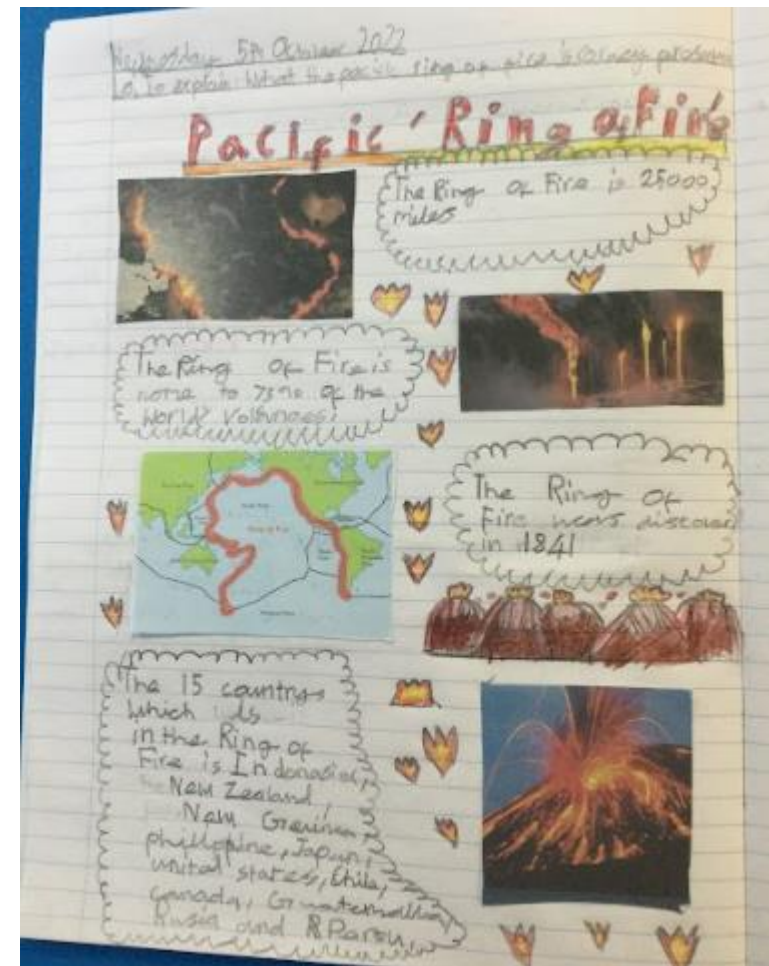 Wednesday 5th October 2022
L.O. To explain what the pacific ring of fire is
Pacific Ring of Fire
The Ring of Fire is 25000
miles
The Ring of Fire is
home to 75% of the
World Volhnoes.
The Ring of
Fire wers discover
in 1841
The 15 countrys
which is
in the Ring of
Fire is Indonasia,
New Zealand,
New Greinea,
phillopine, Japan,
united states, Chile,
Canada, Guatemalia,
Rusia and